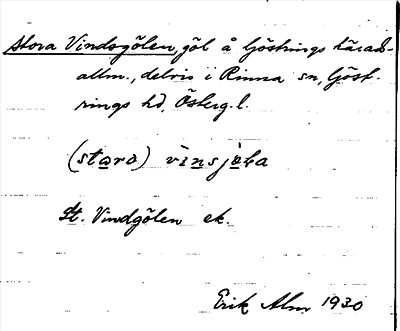 Stora Vindsgölen, göl å Göstrings härads-
allm., delvis i Rinna sn, Göst-
rings hd, Österg. l.
(stara) vinsjəka
St. Vindgölen ek.
Erik Alm 1930